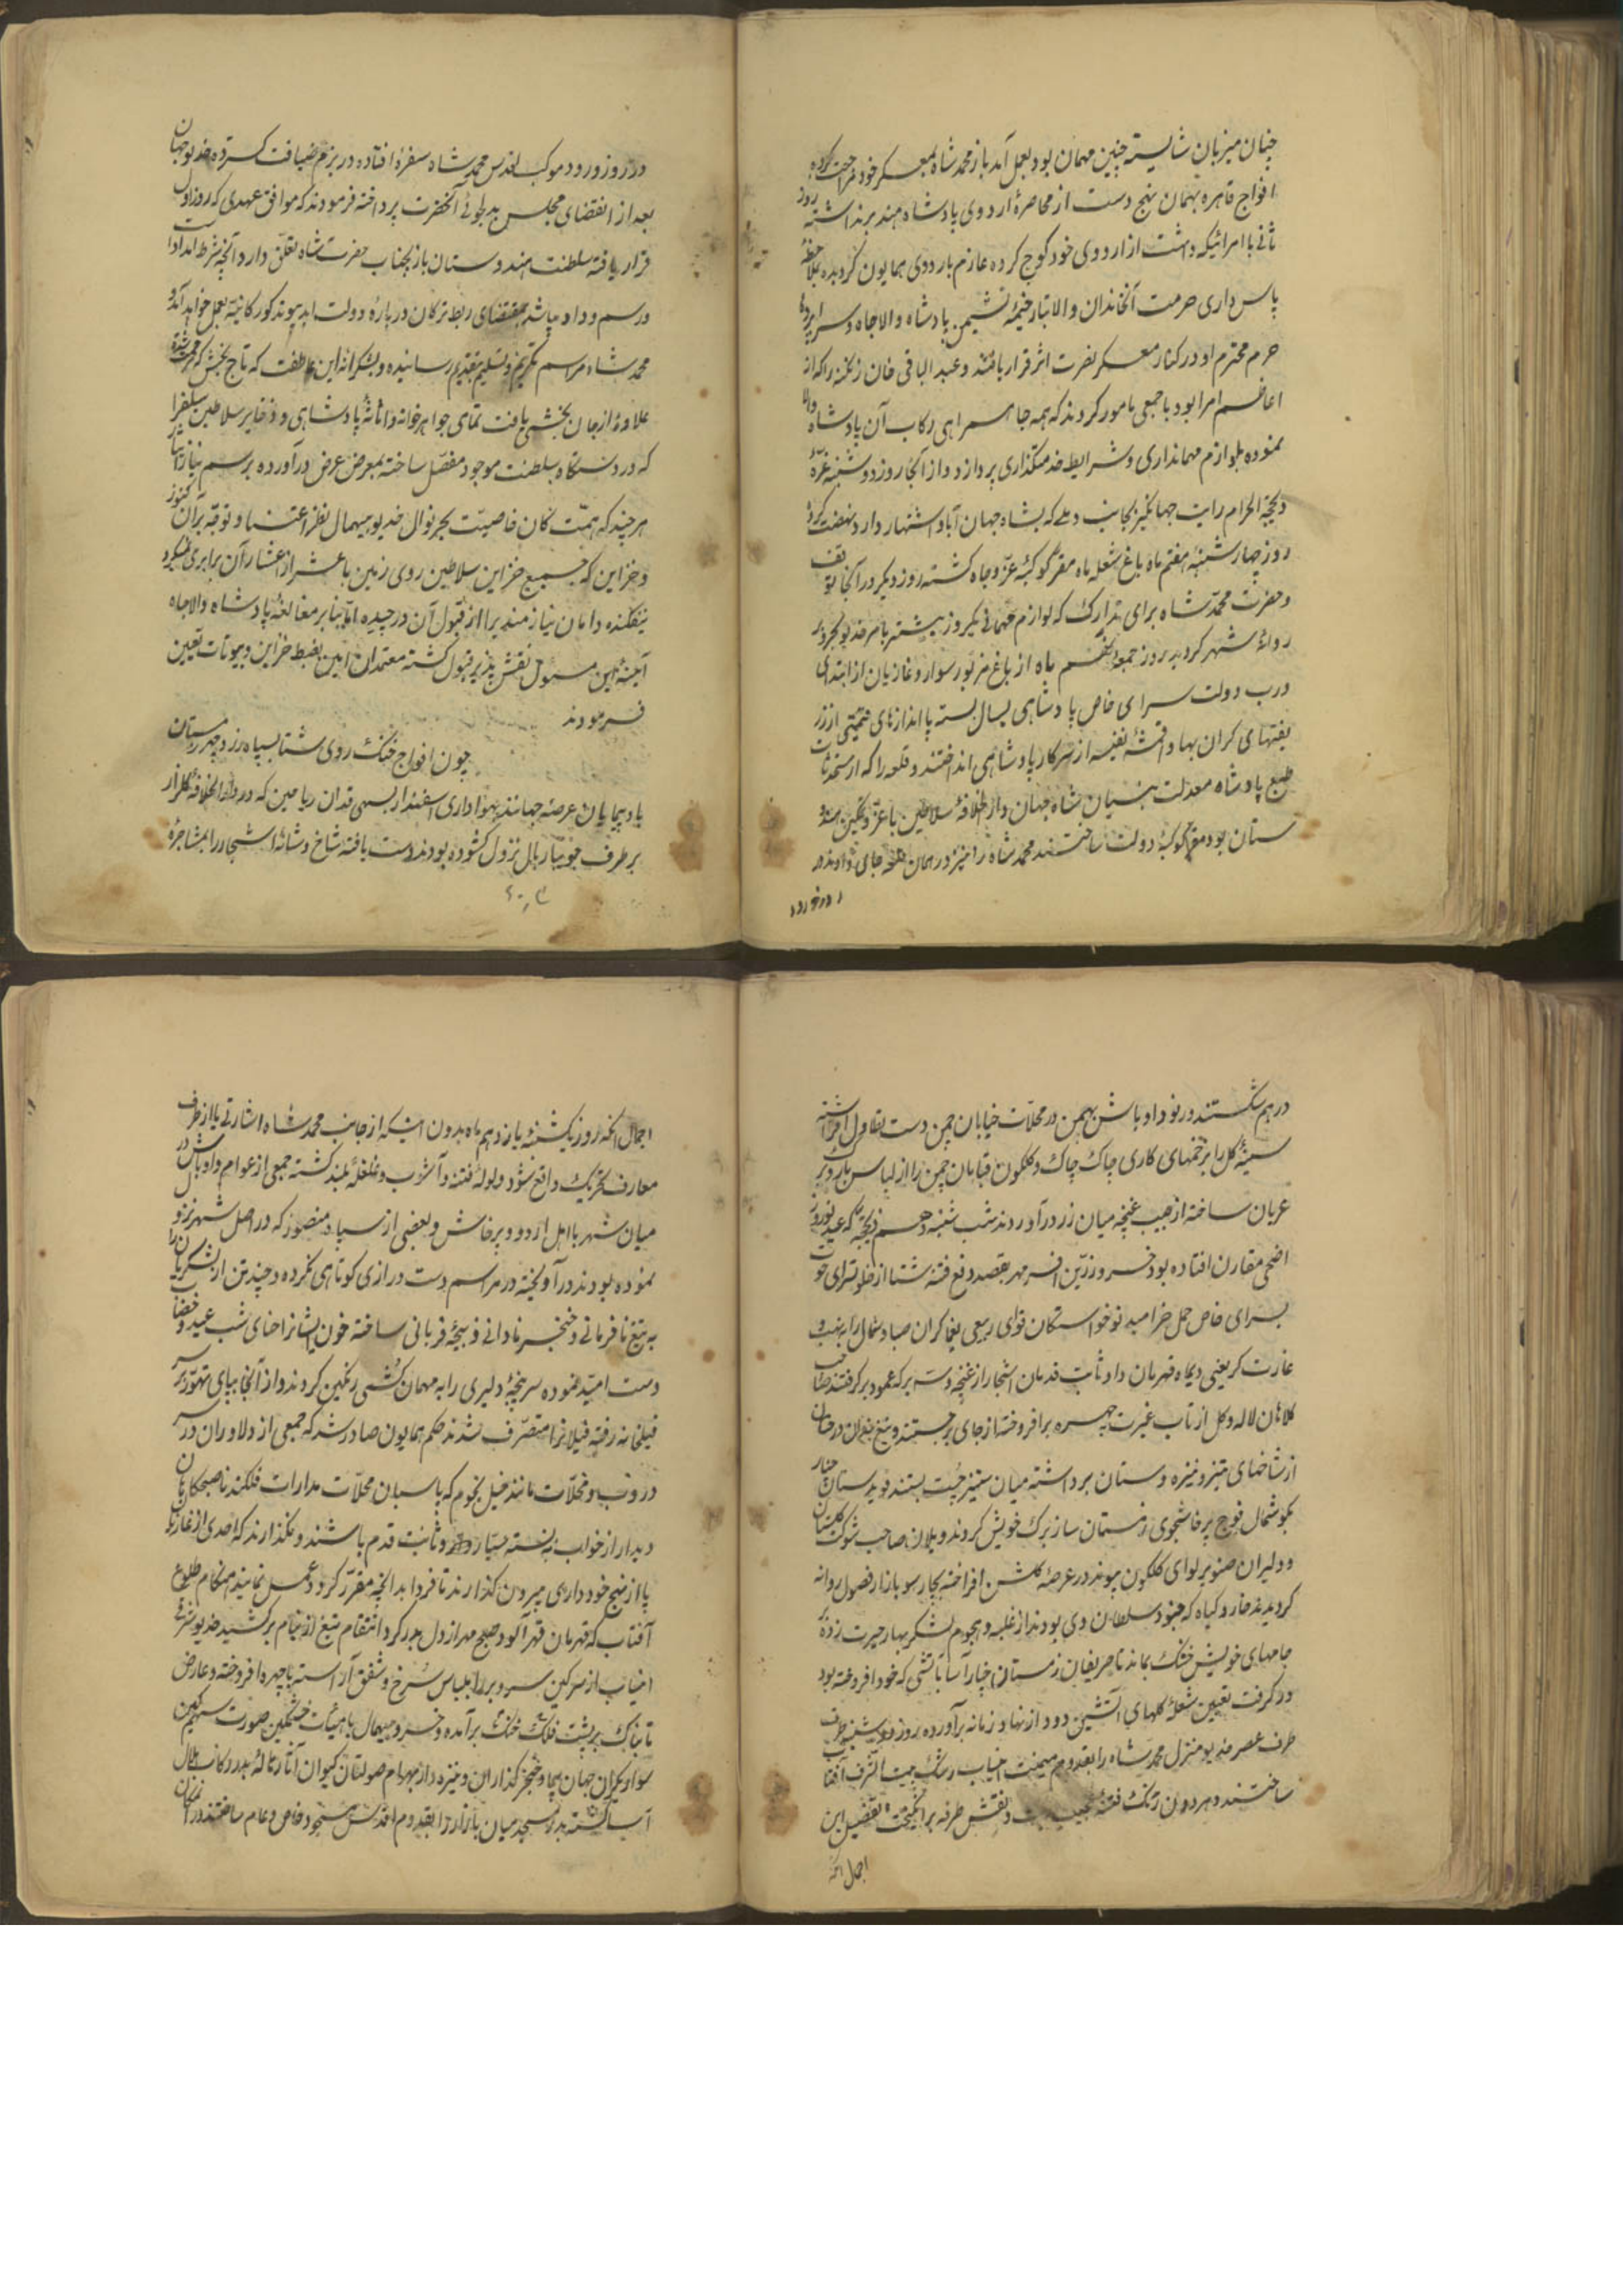 چنان میزبان شایسته چنین مهمان بود بعمل آمد باز محمد شاه بمعسکر خود مراجعت کرده
افواج قاهره بهمان نهج دست از محاصرهٔ اردوی پادشاه هند برنداشته روز
ثانی با امرائیکه داشت از اردوی خود کوچ کرده عازم باردوی همایون گردیده بملاحظهٔ
پاس داری حرمت آنخاندان والاتبار خیمهٔ نشیمن پادشاه والاجاه و سراپردهٔ
حرم محترم او در کنار معسکر نصرت اثر قرار یافته و عبدالباقی خان زنگنه را که از
اعاظم امرا بود با جمعی مامور کردند که همه جا همراهی رکاب آن پادشاه والا
نموده بلوازم مهمانداری و شرایط خدمتگذاری پردازد و از آنجا روز دوشنبه غرهٔ
ذیحجة الحرام رایت جهانگیر بجانب دهلی که بشاه جهان آباد اشتهار دارد نهضت کرد
روز چهارشنبه هفتم ماه باغ شعله ماه مقر کوکبهٔ عز و جاه گشته روز دیگر در آنجا توقف
و حضرت محمد شاه برای تدارک لوازم مهمانی یکروز پیشتر بامر خدیو بحر و بر
روانهٔ شهر گردید روز جمعه نهم ماه از باغ مزبور سوار و غازیان از ابتدای
درب دولت سرای خاص پادشاهی یسال بسته پا اندازهای قیمتی از زر
بفتهای گران بها و اقمشهٔ نفیسه از سرکار پادشاهی انداختند و قلعه را که از مستحدثات
طبع پادشاه معدلت بنیان شاه جهان و دار الخلافهٔ سلاطین با عز و تمکین هندو
ستان بود مقر کوکبهٔ دولت ساختند محمد شاه را نیز در همان قلعه جای دادند و
در روز ورود
در روز ورود موکب اقدس محمد شاه سفرهٔ افتاده در بزم ضیافت گسترده خدیو جهان
بعد از انقضای مجلس بدلجوئی آنحضرت پرداخته فرمودند که موافق عهدی که روز اول
قرار یافته سلطنت هندوستان باز بجناب حضرت شاه تعلق دارد و آنچه شرط امداد است
و رسم وداد باشد بمقتضای ربط ترکان دربارهٔ دولت ابد پیوند گورکانیه بعمل خواهد آمد و
محمد شاه مراسم تکریم و تسلیم بتقدیم رسانیده و بشکرانهٔ این عاطفت که تاج بخشی
علاوهٔ از جان بخشی یافت تمامی جواهرخانه و اثاثهٔ پادشاهی و ذخایر سلاطین سلف را
که در دستگاه سلطنت موجود مفصل ساخته بمعرض عرض درآورده برسم نیاز
هر چند که همت کان خاصیت بحر نوال خدیو بیهمال نظر اعتنا و توجه بر آن کنوز
و خزاین که جمیع خزاین سلاطین روی زمین با عشر از اعشار آن برابری نمیکرد
نیفکنده دامان نیازمند پرا از قبول آن در چیده اما بنابر مبالغهٔ پادشاه والاجاه
آینهٔ این مسئول نقش پذیر قبول گشته معتمدان امین بضبط خزاین و بیوتات تعیین
فرمودند
چون افواج خنک روی شتا بسپاه رزد و چهر زمستان
بادپیمایان عرصهٔ جهانند بهواداری اسفندار بسهی قدان ریاحین که در دار الخلافهٔ گلزار
بر طرف جویبار بال نزول گشوده بودند دست یافته شاخ و شانهٔ اشجار را بمشاجرهٔ
در هم شکستند و رنود اوباش بهمن در محلات خیابان چمن دست تطاول افراشته
سینهٔ گل را بزخمهای کاری چاک چاک و گلگون قبایان چمن را از لباس بار و بر
عریان ساخته از جیب غنچه میان زر درآوردند شب شنبه دهم ذیحجه که عید نوروز
اضحی مقارن افتاده بود خسرو زرین افسر مهر بقصد دفع فتنهٔ شتا از خلوتسرای حوت
بسرای خاص حمل خرامید نوخواستگان قوای ربیعی یغماگران صبا و شمال را بنهب و
غارت گر یعنی دیماه قهرمان داد ثابت قدمان اشجار از غنچه و بسته برگ عمود بر گرفتند صاحب
کلاهان لاله و گل از تاب غیرت چهره برافروخته از جای برجستند و تیغ بندان درختان
از شاخهای تیز و نیزه دستان برداشته میان ستیز چست بستند
بکوشمال فوج پرخاشجوی زمستان ساز برگ خویش کردند و یلان صاحب شوکت گلستان
و دلیران صنوبر لوای گلگون پیوند در عرصهٔ گلشن افراخته بچارسو بازار فصول روانه
گردیدند خار و گیاه که جنود سلطان دی بودند از غلبه و هجوم لشکر بهار حیرت زده
جامهای خویش خشک بماند تا حریفان زمستان اخبار آسا بآتشی که خود افروخته بود
در گرفت تعیین شعلهٔ گلهای آتشین دود از نهاد زمانه برآورده روز
طرف عصر خدیو منزل محمد شاه را بقدوم میمنت انتساب رشک بیت الشرف آفتاب
ساختند و هر دون رنگ فتنهٔ عجیب ریخت و نقش طرفه برانگیخت تفصیل این
اجمال آنکه
اجمال آنکه روز یکشنبه یازدهم ماه بدون اینکه از جانب محمد شاه اشارتی یا از طرف
معارف تحریک واقع شود ولولهٔ فتنه و آشوب و غلغله بلند گشته جمعی از عوام و اوباش در
میان شهر با اهل اردو و پرخاش و بعضی از سپاه منصور که در اصل شهر نزول
نموده بودند درآویخته در مراسم دست درازی کوتاهی نکرده و چند تن از لشکریان را
به تیغ نافرمانی و خنجر نادانی ذبیحهٔ قربانی ساخته خون ایشانرا حنای شب عید و خضاب
دست امید نموده سرپنجهٔ دلیری را به مهمان کشی رنگین کردند و از آنجا بپای تهور بر سر
فیلخانه رفته فیلانرا متصرف شدند حکم همایون صادر شد که جمعی از دلاوران در سر
دروب و محلات مانند خیل نجوم که پاسبان محلات مدارات فلکند تا صبحگاهان
دیدار از خواب بسته سیار و ثابت قدم باشند و نگذارند که احدی از غازیان
پا از نهج خودداری بیرون گذارند تا فردا بدانچه مقرر گردد عمل نمایند هنگام طلوع
آفتاب که قهرمان قهرآلود صبح مهر از دل بدر کرد انتقام تیغ از نیام برکشید خدیو شرق
انتساب از سر کین سر و بر را بلباس سرخ و شفق آراسته با چهره افروخته و عارض
تابناک بر پشت فلک خنک برآمده و خسرو بیهمال با هیئات خشمگین صورت سهمگین
سوار یکران جهان پیما و خنجر گذاران و نیزه دار بهرام صولتان کیوان آثار
آسا گشته بمسجد میان بازار را بقدوم اقدس مسجود خاص و عام ساختند در آن